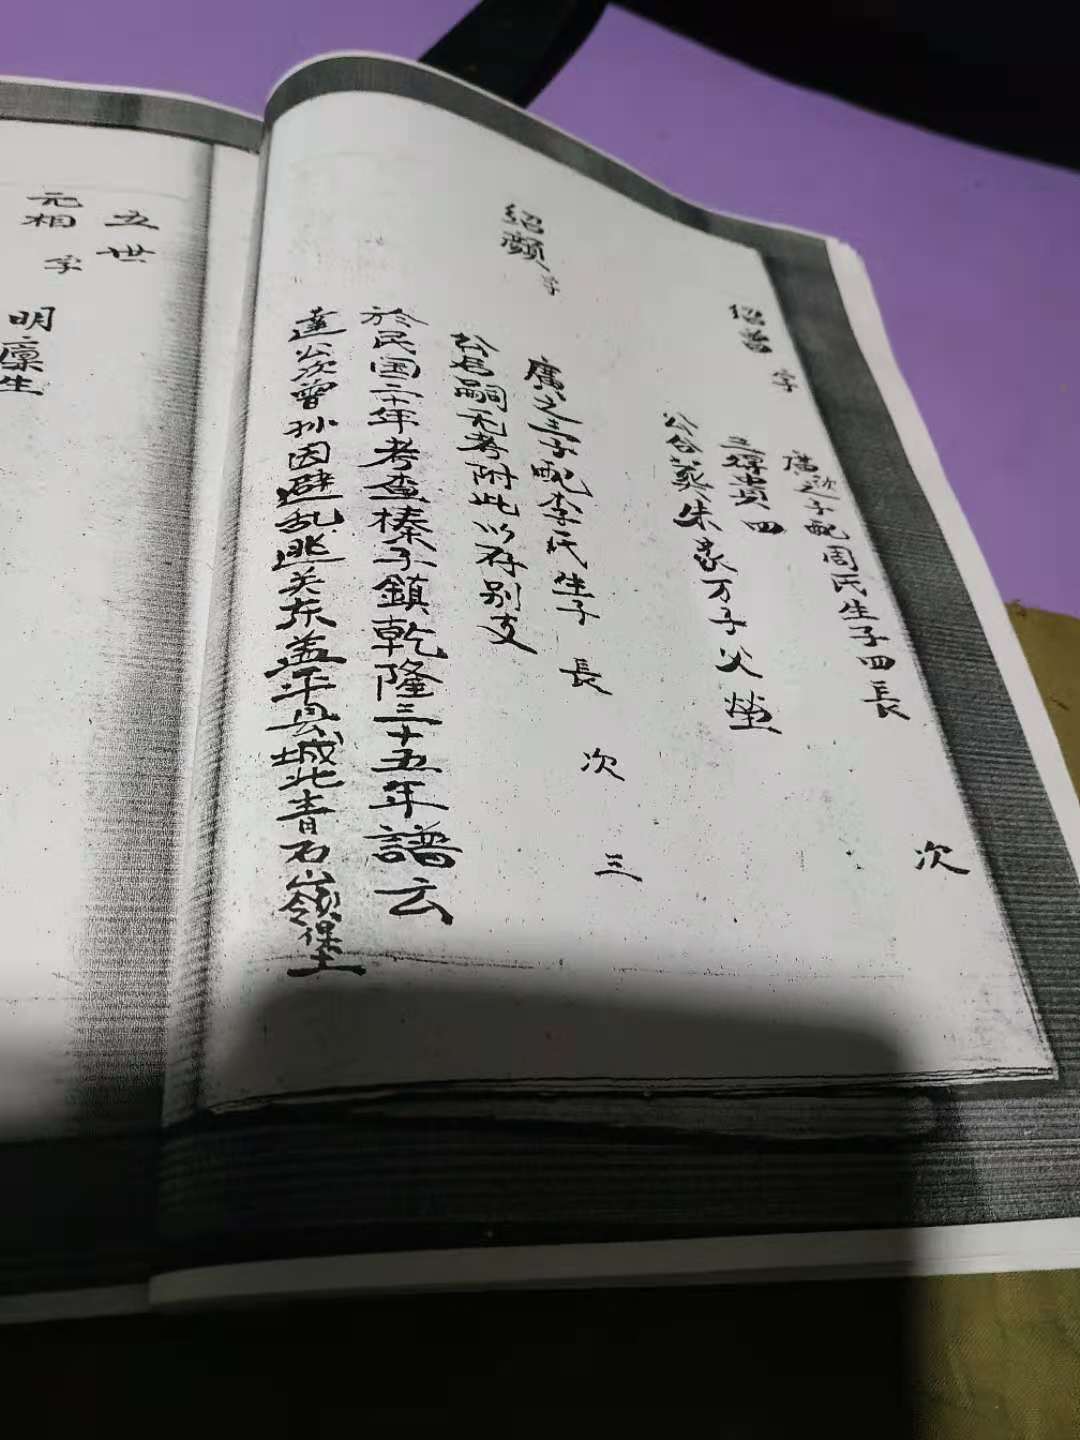 绍 字
廣之次子配周氏生子四長
次
三得貴四
公合葬朱家万子父塋
绍 字
廣之三子配李氏生子 長 次 三
公后嗣无考附此以存别支
於民国二十年考查榛子鎮乾隆三十五年譜云
達公次曾孙因避乱逃关东盖平县城北青石嶺堡
五世
元相 字
明廪生